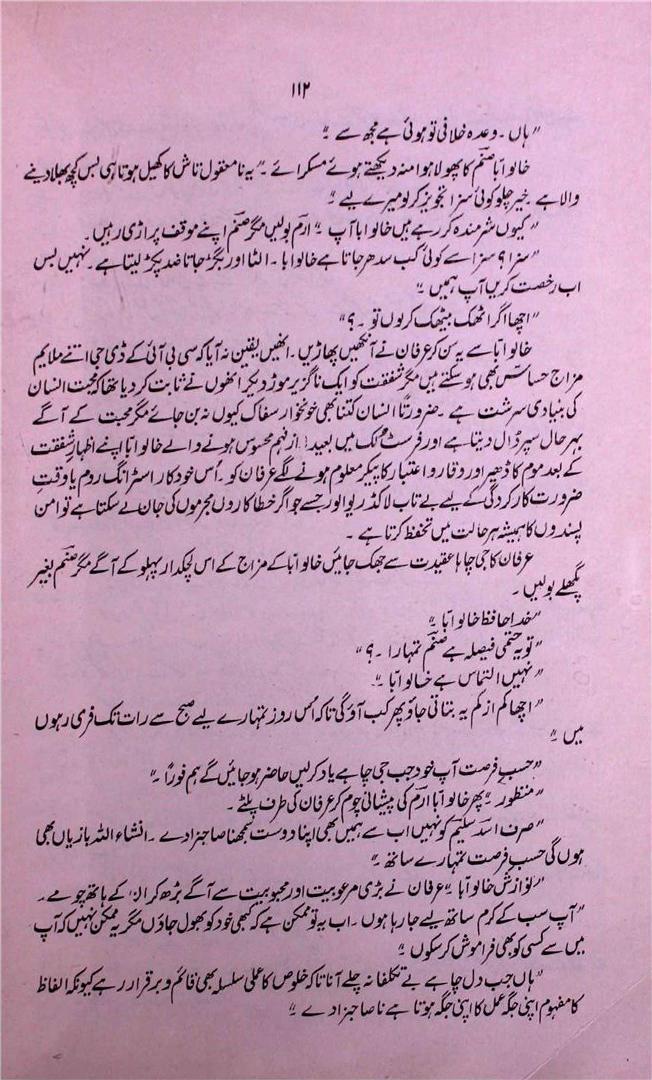 ۱۱۲
"ہاں ۔ وعدہ خلافی تو ہوئی ہے مجھ سے ۔"
خالو ابا صنم کا پھولا ہوا منہ دیکھتے ہوئے مسکرائے ۔ "یہ نامعقول تاش کا کھیل ہوتا ہی بس کچھ بھلا دینے
والا ہے ۔ خیر چلو کوئی سزا تجویز کر لو میرے لیے ۔"
"کیوں شرمندہ کر رہے ہیں خالو ابا آپ ۔" ارم بولیں مگر صنم اپنے موقف پر اڑی رہیں ۔
"سزا ؟ سزا سے کوئی کب سدھر جاتا ہے خالو ابا ۔ الٹا اور بگڑ جاتا ضد پکڑ لیتا ہے ۔ نہیں بس
اب رخصت کریں آپ ہمیں ۔"
"اچھا اگر اٹھک بیٹھک کر لوں تو ۔ ؟"
خالو ابا سے یہ سن کر عرفان نے آنکھیں پھاڑیں ۔ انھیں یقین نہ آیا کہ سی بی آئی کے ڈی جی اتنے ملایم
مزاج حساس بھی ہو سکتے ہیں مگر شفقت کو ایک ناگزیر موڑ دیکر انھوں نے ثابت کر دیا تھا کہ محبت انسان
کی بنیادی سرشت ہے ۔ ضرورتاً انسان کتنا بھی خونخوار سفاک کیوں نہ بن جائے مگر محبت کے آگے
بہر حال سپر ڈال دیتا ہے اور فرسٹ لک میں بعید از فہم محسوس ہونے والے خالو ابا اپنے اظہارِ شفقت
کے بعد موم کا ڈھیر اور وقار و اعتبار کا پیکر معلوم ہونے لگے عرفان کو ۔ اُس خود کار اسٹرانگ روم یا وقتِ
ضرورت کارکردگی کے لیے بے تاب لاکڈ ریوالور جیسے جو اگر خطا کاروں مجرموں کی جان لے سکتا ہے تو امن
پسندوں کا ہمیشہ ہر حالت میں تحفظ کرتا ہے ۔
عرفان کا جی چاہا عقیدت سے جھک جائیں خالو ابا کے مزاج کے اس لچکدار پہلو کے آگے مگر صنم بغیر
پگھلے بولیں ۔
"خدا حافظ خالو ابا ۔"
"تو یہ حتمی فیصلہ ہے صنم تمہارا ۔ ؟"
"نہیں التماس ہے خالو ابا ۔"
"اچھا کم از کم یہ بتاتی جاؤ پھر کب آؤ گی تاکہ اُس روز تمہارے لیے صبح سے رات تک فری رہوں
میں ۔"
"حسبِ فرصت آپ خود جب جی چاہے یاد کر لیں حاضر ہو جائیں گے ہم فوراً ۔"
"منظور ۔" پھر خالو ابا ارم کی پیشانی چوم کر عرفان کی طرف پلٹے ۔
"صرف اسد سلیم کو نہیں اب سے ہمیں بھی اپنا دوست سمجھنا صاحبزادے ۔ انشاء اللہ بازیاں بھی
ہوں گی حسبِ فرصت تمہارے ساتھ ۔"
"نوازش خالو ابا ۔" عرفان نے بڑی مرعوبیت اور محبوبیت سے آگے بڑھ کر ان کے ہاتھ چومے ۔
"آپ سب کے کرم ساتھ لیے جا رہا ہوں ۔ اب یہ تو ممکن ہے کہ کبھی خود کو بھول جاؤں مگر یہ ممکن نہیں کہ آپ
میں سے کسی کو بھی فراموش کر سکوں ۔"
"ہاں جب دل چاہے بے تکلفانہ چلے آنا تاکہ خلوص کا عملی سلسلہ بھی قائم و برقرار رہے کیونکہ الفاظ
کا مفہوم اپنی جگہ عمل کا اپنی جگہ ہوتا ہے نا صاحبزادے ۔"